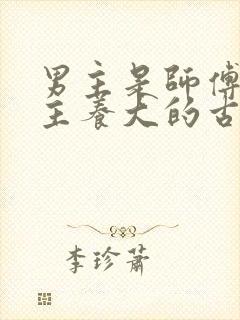 男主是師傅
主養大的古
李珍蕭